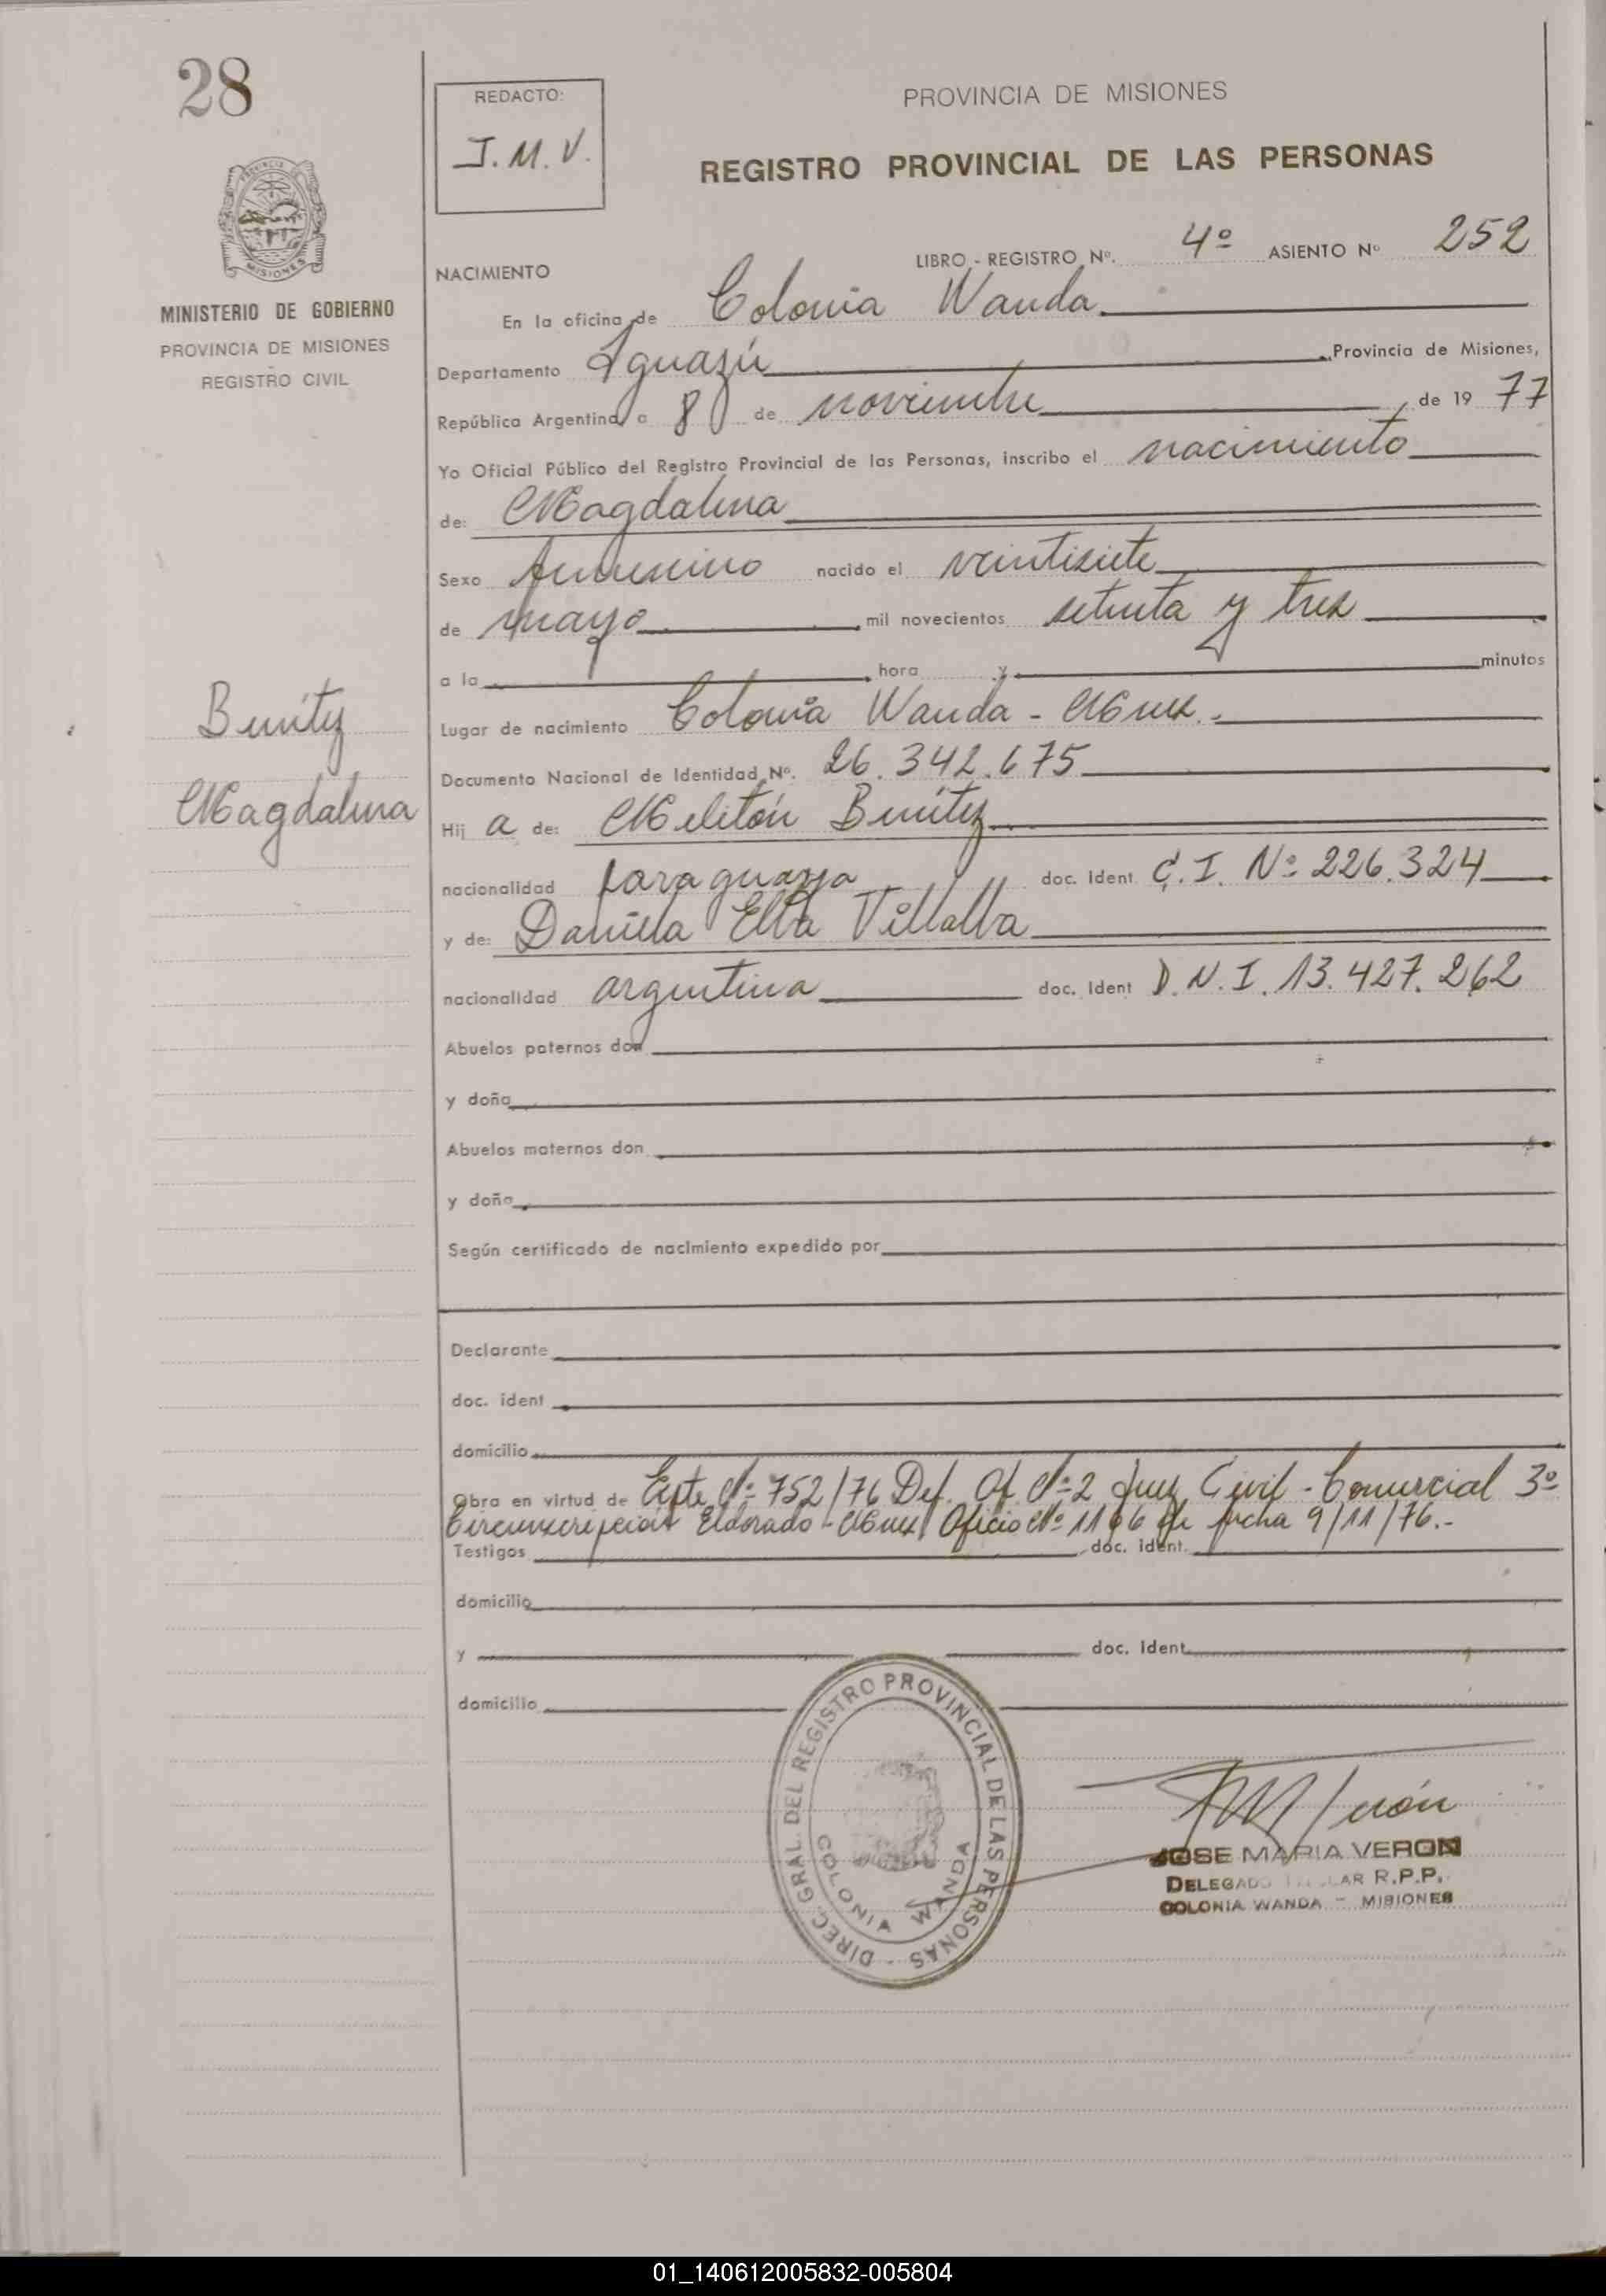 28
REDACTO:
J. M. V.
PROVINCIA DE MISIONES
REGISTRO PROVINCIAL DE LAS PERSONAS
MISIONES
MINISTERIO DE GOBIERNO
PROVINCIA DE MISIONES
REGISTRO CIVIL
LIBRO - REGISTRO Nº. 4º ASIENTO Nº 252
NACIMIENTO
En la oficina de Colonia Wanda.
Departamento Iguazú Provincia de Misiones,
República Argentina, a 8 de noviembre de 19 77
Yo Oficial Público del Registro Provincial de las Personas, inscribo el nacimiento
de: Magdalena
Sexo femenino nacido el veintisiete
de mayo mil novecientos setenta y tres
a la hora y minutos
Lugar de nacimiento Colonia Wanda - Mnes.
Benítez
Magdalena
Documento Nacional de Identidad Nº. 26.342.675
Hij a de: Melitón Benítez
nacionalidad paraguaya doc. Ident. C. I. Nº 226.324
y de: Daniela Elba Villalba
nacionalidad argentina doc. Ident D. N. I. 13.427.262
Abuelos paternos don
y doña
Abuelos maternos don
y doña
Según certificado de nacimiento expedido por
Declarante
doc. ident
domicilio
Obra en virtud de Expte Nº 752/76 Def. Of. Nº 2 Juez Civil - Comercial 3º
Circunscripción Eldorado - Mnes Oficio Nº de fecha 9/11/76.-
Testigos doc. ident.
domicilio
y doc. Ident.
domicilio
DIREC. GRAL. DEL REGISTRO PROVINCIAL DE LAS PERSONAS -
COLONIA WANDA
JOSE MARIA VERON
DELEGADO R.P.P.
COLONIA WANDA - MISIONES
01_140612005832-005804